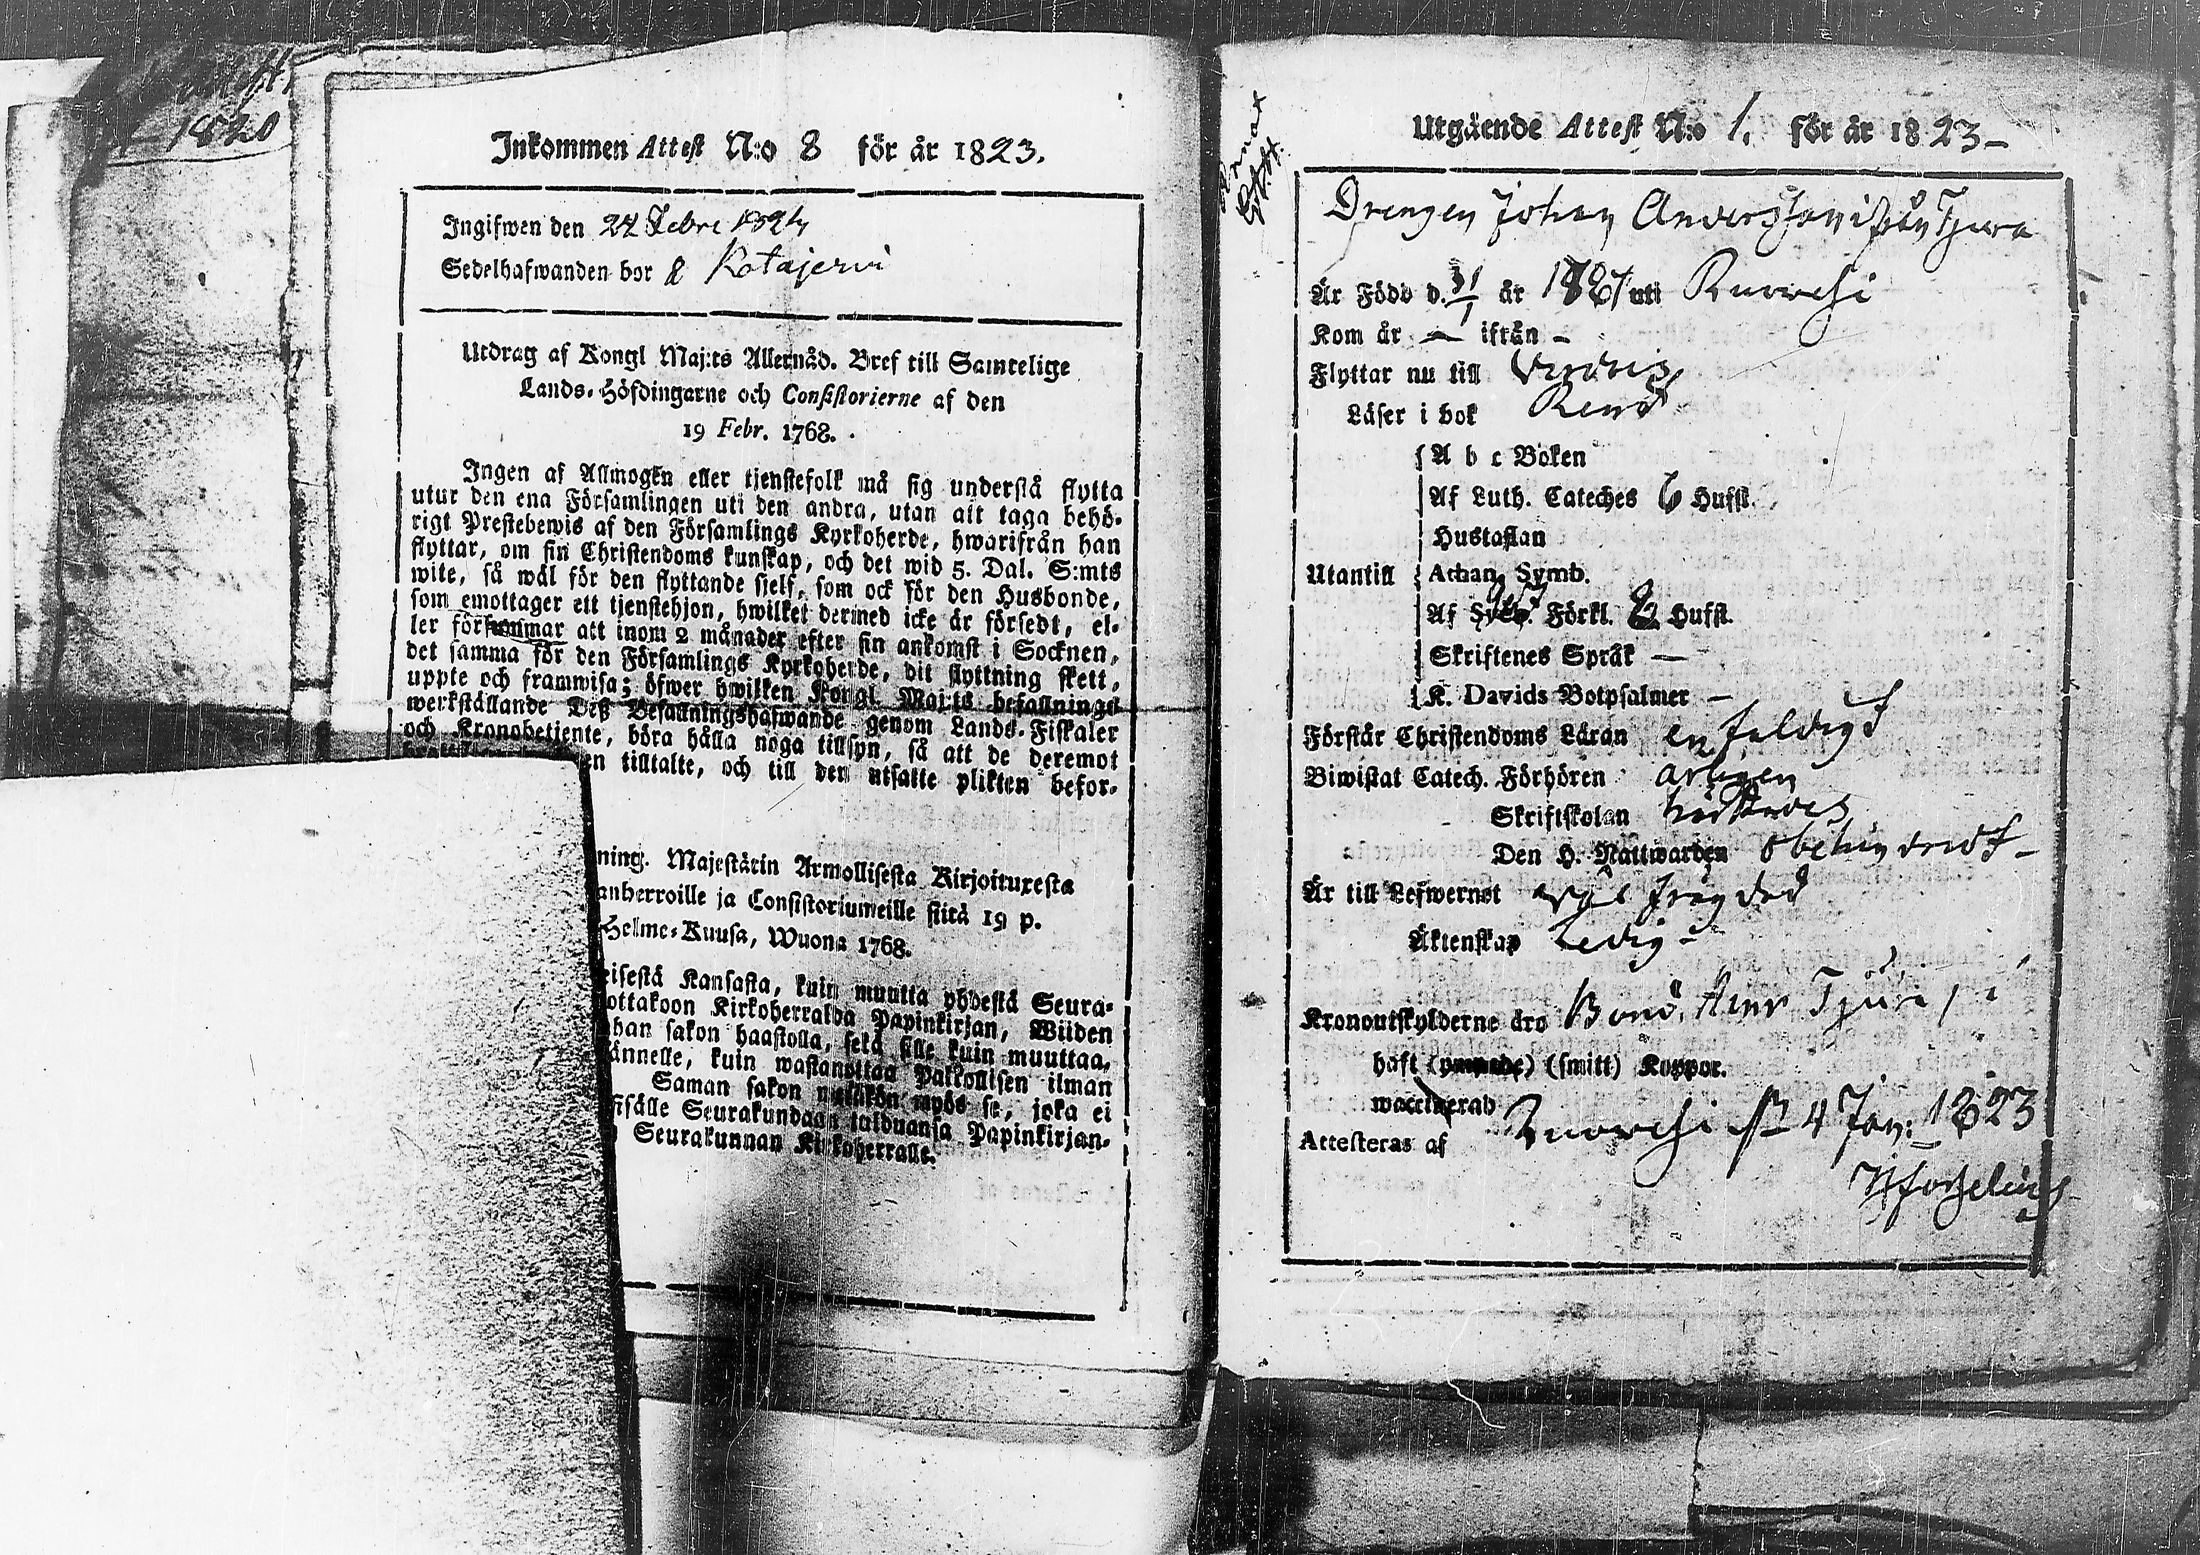 1820
Inkommen Attest N:o 8 för år 1823.
Ingifwen den 24 Febr 1824
Sedelhafwanden bor Kotajerwi
Utdrag af Kongl Maj:ts Allernåd. Bref till Samtelige
Lands-Höfdingarne och Consistorierne af den
19 Febr. 1768.
Ingen af Allmogen eller tjenstefolk må sig understå flytta
utur den ena Församlingen uti den andra, utan att taga behö-
rigt Prestebewis af den Församlings Kyrkoherde, hwarifrån han
flyttar, om sin Christendoms kunskap, och det wid 5. Dal. S:mts
wite, så wäl för den flyttande sjelf, som ock för den Husbonde,
som emottager ett tjenstehjon, hwilket dermed icke är försedt, el-
ler försummar att inom 2 månader efter sin ankomst i Socknen,
det samma för den Församlings Kyrkoherde, dit flyttning skett,
uppte och framwisa; öfwer hwilken Kongl. Maj:ts befallnings
werkställande Deß Befallningshafwande genom Lands-Fiskaler
och Kronobetjente, böra hålla noga tillsyn, så att de deremot
en tilltalte, och till den utsatte plikten befor-
ning. Majestätin Armollisesta Kirjoituxesta
anherroille ja Consistoriumeille siitä 19 p.
Helme-Kuusa, Wuona 1768.
eisestä Kansasta, kuin muutta yhdestä Seura-
ottakoon Kirkoherralda Papinkirjan, Wiiden
han sakon haastolla, sekä sille kuin muuttaa,
ännelle, kuin wastanottaa Palkollisen ilman
Saman sakon myös se, joka ei
sisälle Seurakundaan tulduansa Papinkirjan-
Seurakunnan Kirkoherralle.
Utgående Attest N:o 1. för år 1823
Drengen Johan Andersson ifrån Tjura
Är Född d. 31/1 år uti Ruowesi
Kom år — ifrån —
Flyttar nu till
Läser i bok Rent
A b c Boken
Af Luth. Cateches 6 Hufst.
Hustaflan
Utantill Athan. Symb.
Af Förkl. Hufst.
Skriftenes Språk —
K. Davids Botpsalmer —
Förstår Christendoms Läran enfaldigt
Biwistat Catech. Förhören årligen
Skriftskolan
Den H. Nattwarden obehindradt —
Är till Lefwernet wäl frägdad
Äktenskap Ledig —
Kronoutskylderne äro Tjura
haft (ympade) (smitt) Koppor.
waccinerad
Attesteras af Ruowesi 4 Jan: 1823